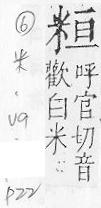 呼官切音
歡白米
⑥
米
.
U9
.
P22